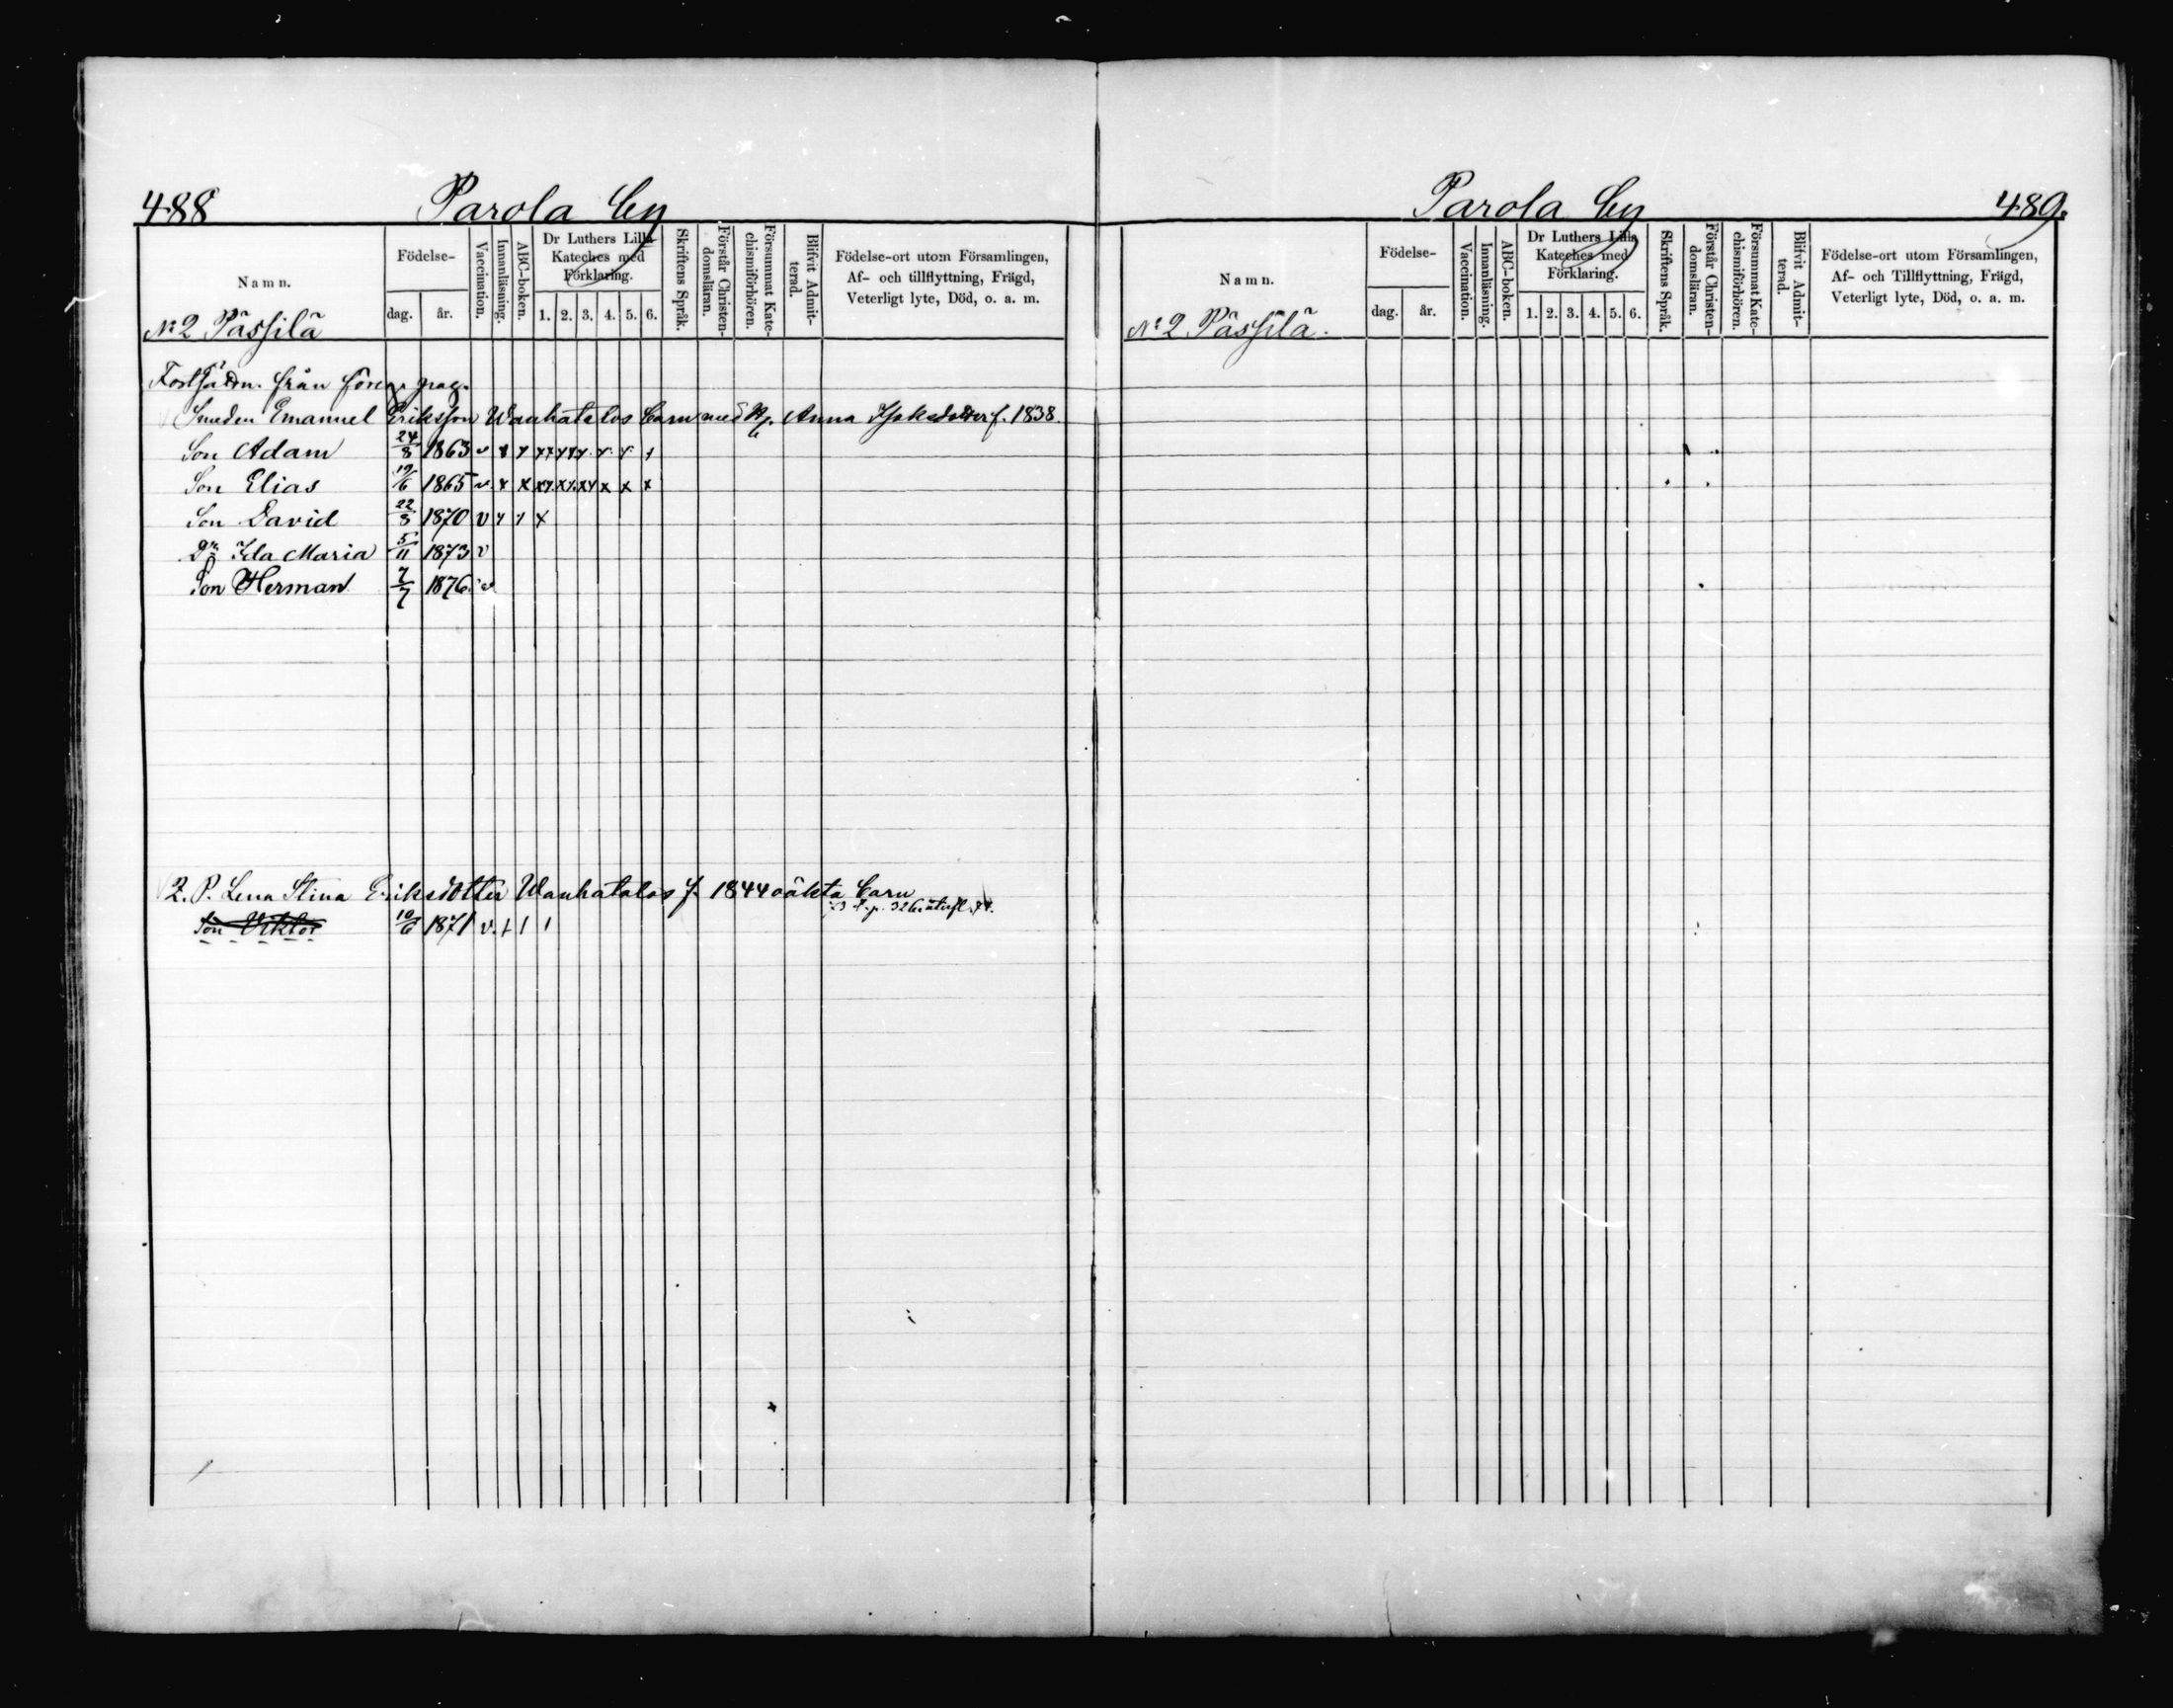 488 Parola by
Namn. Födelse- Vaccination. Innanläsning. ABC-boken. Dr Luthers Lilla Kateches med Förklaring. Skriftens Språk. Förstår Christen-domsläran. Försummat Kate-chismiförhören. Blifvit Admit-terad. Födelse-ort utom Församlingen, Af- och tillflyttning, Frägd, Veterligt lyte, Död, o. a. m.
dag. år. 1. 2. 3. 4. 5. 6.
No 2 Pässilä
från föreg. pag.
Smeden Emanuel Eriksson Wanhatalos barn med H. Anna f. 1838.
Son Adam 24/8 1863 v x x xx xxx x x x
Son Elias 19/6 1865 v x x xx xx xx x x x
Son David 22/8 1870 v x x x
Dr Ida Maria 5/11 1873 v
Son Herman 7/7 1876 v
2. P. Lena Stina Eriksdotter Wanhatalos f. 1844 oäkta barn
Son Viktor 10/6 1871 v. + 1 1
Parola by 489.
Namn. Födelse- Vaccination. Innanläsning. ABC-boken. Dr Luthers Lilla Kateches med Förklaring. Skriftens Språk. Förstår Christen-domsläran. Försummat Kate-chismiförhören. Blifvit Admit-terad. Födelse-ort utom Församlingen, Af- och Tillflyttning, Frägd, Veterligt lyte, Död, o. a. m.
dag. år. 1. 2. 3. 4. 5. 6.
No 2 Pässilä.